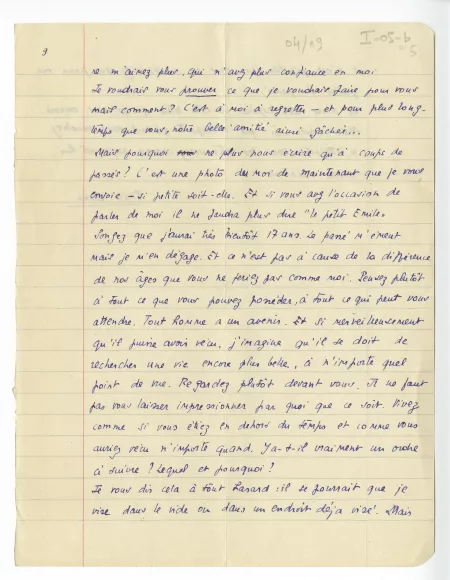 9
04/09
I-05-b
5
ne m'aimez plus, qui n'avez plus confiance en moi
Je voudrais vous prouver ce que je voudrais faire pour vous
mais comment? C'est à moi à regretter – et pour plus long-
temps que vous, notre belle amitié ainsi gâchée...
Mais pourquoi ne plus nous écrire qu'à coups de
passés? C'est une photo du moi de maintenant que je vous
envoie – si petite soit-elle. Et si vous avez l'occasion de
parler de moi il ne faudra plus dire "le petit Emile"
Songez que j'aurai très bientôt 17 ans. Le passé m'émeut
mais je m'en dégage. Et ce n'est pas à cause de la différence
de nos âges que vous ne feriez pas comme moi. Pensez plutôt
à tout ce que vous pouvez posséder, à tout ce qui peut vous
attendre. Tout homme a un avenir. Et si merveilleusement
qu'il puisse avoir vécu, j'imagine qu'il se doit de
rechercher une vie encore plus belle, à n'importe quel
point de vue. Regardez plutôt devant vous. Il ne faut
pas vous laisser impressionner par quoi que ce soit. Vivez
comme si vous étiez en dehors du temps et comme vous
auriez vécu n'importe quand. Y a-t-il vraiment un ordre
à suivre? Lequel et pourquoi?
Je vous dis cela à tout hasard: il se pourrait que je
vise dans le vide ou dans un endroit déjà visé. Mais